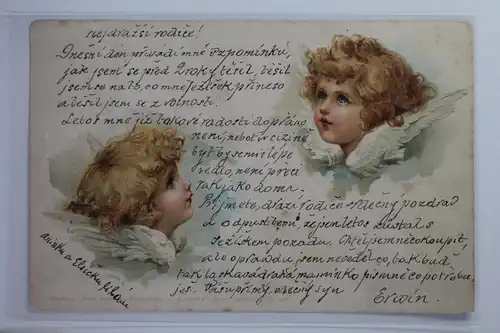 nejdražší rodiče!
Dnešní den přivádí mně vzpomínku,
jak jsem se před 2 roky těšil, těšil
jsem se na to, co mne Ježíšek přinese
a těšil jsem se z volnosti.
Letos mně již takové radosti dopřáno
není, neboť v cizině
byť by se mi i lépe
vedlo, není přeci
tak jako doma.
Přijmete, drazí rodiče srdečný pozdrav
a odpuštění, že jsem letos zůstal s
Ježíškem pozadu. Chtěl jsem něco koupit,
ale opravdu jsem nevěděl co, tak buď
tak laskavá drahá maminko písmně co potřebu-
ješ. Váš upřímný, vděčný syn
Erwin.
a Eličku líbám